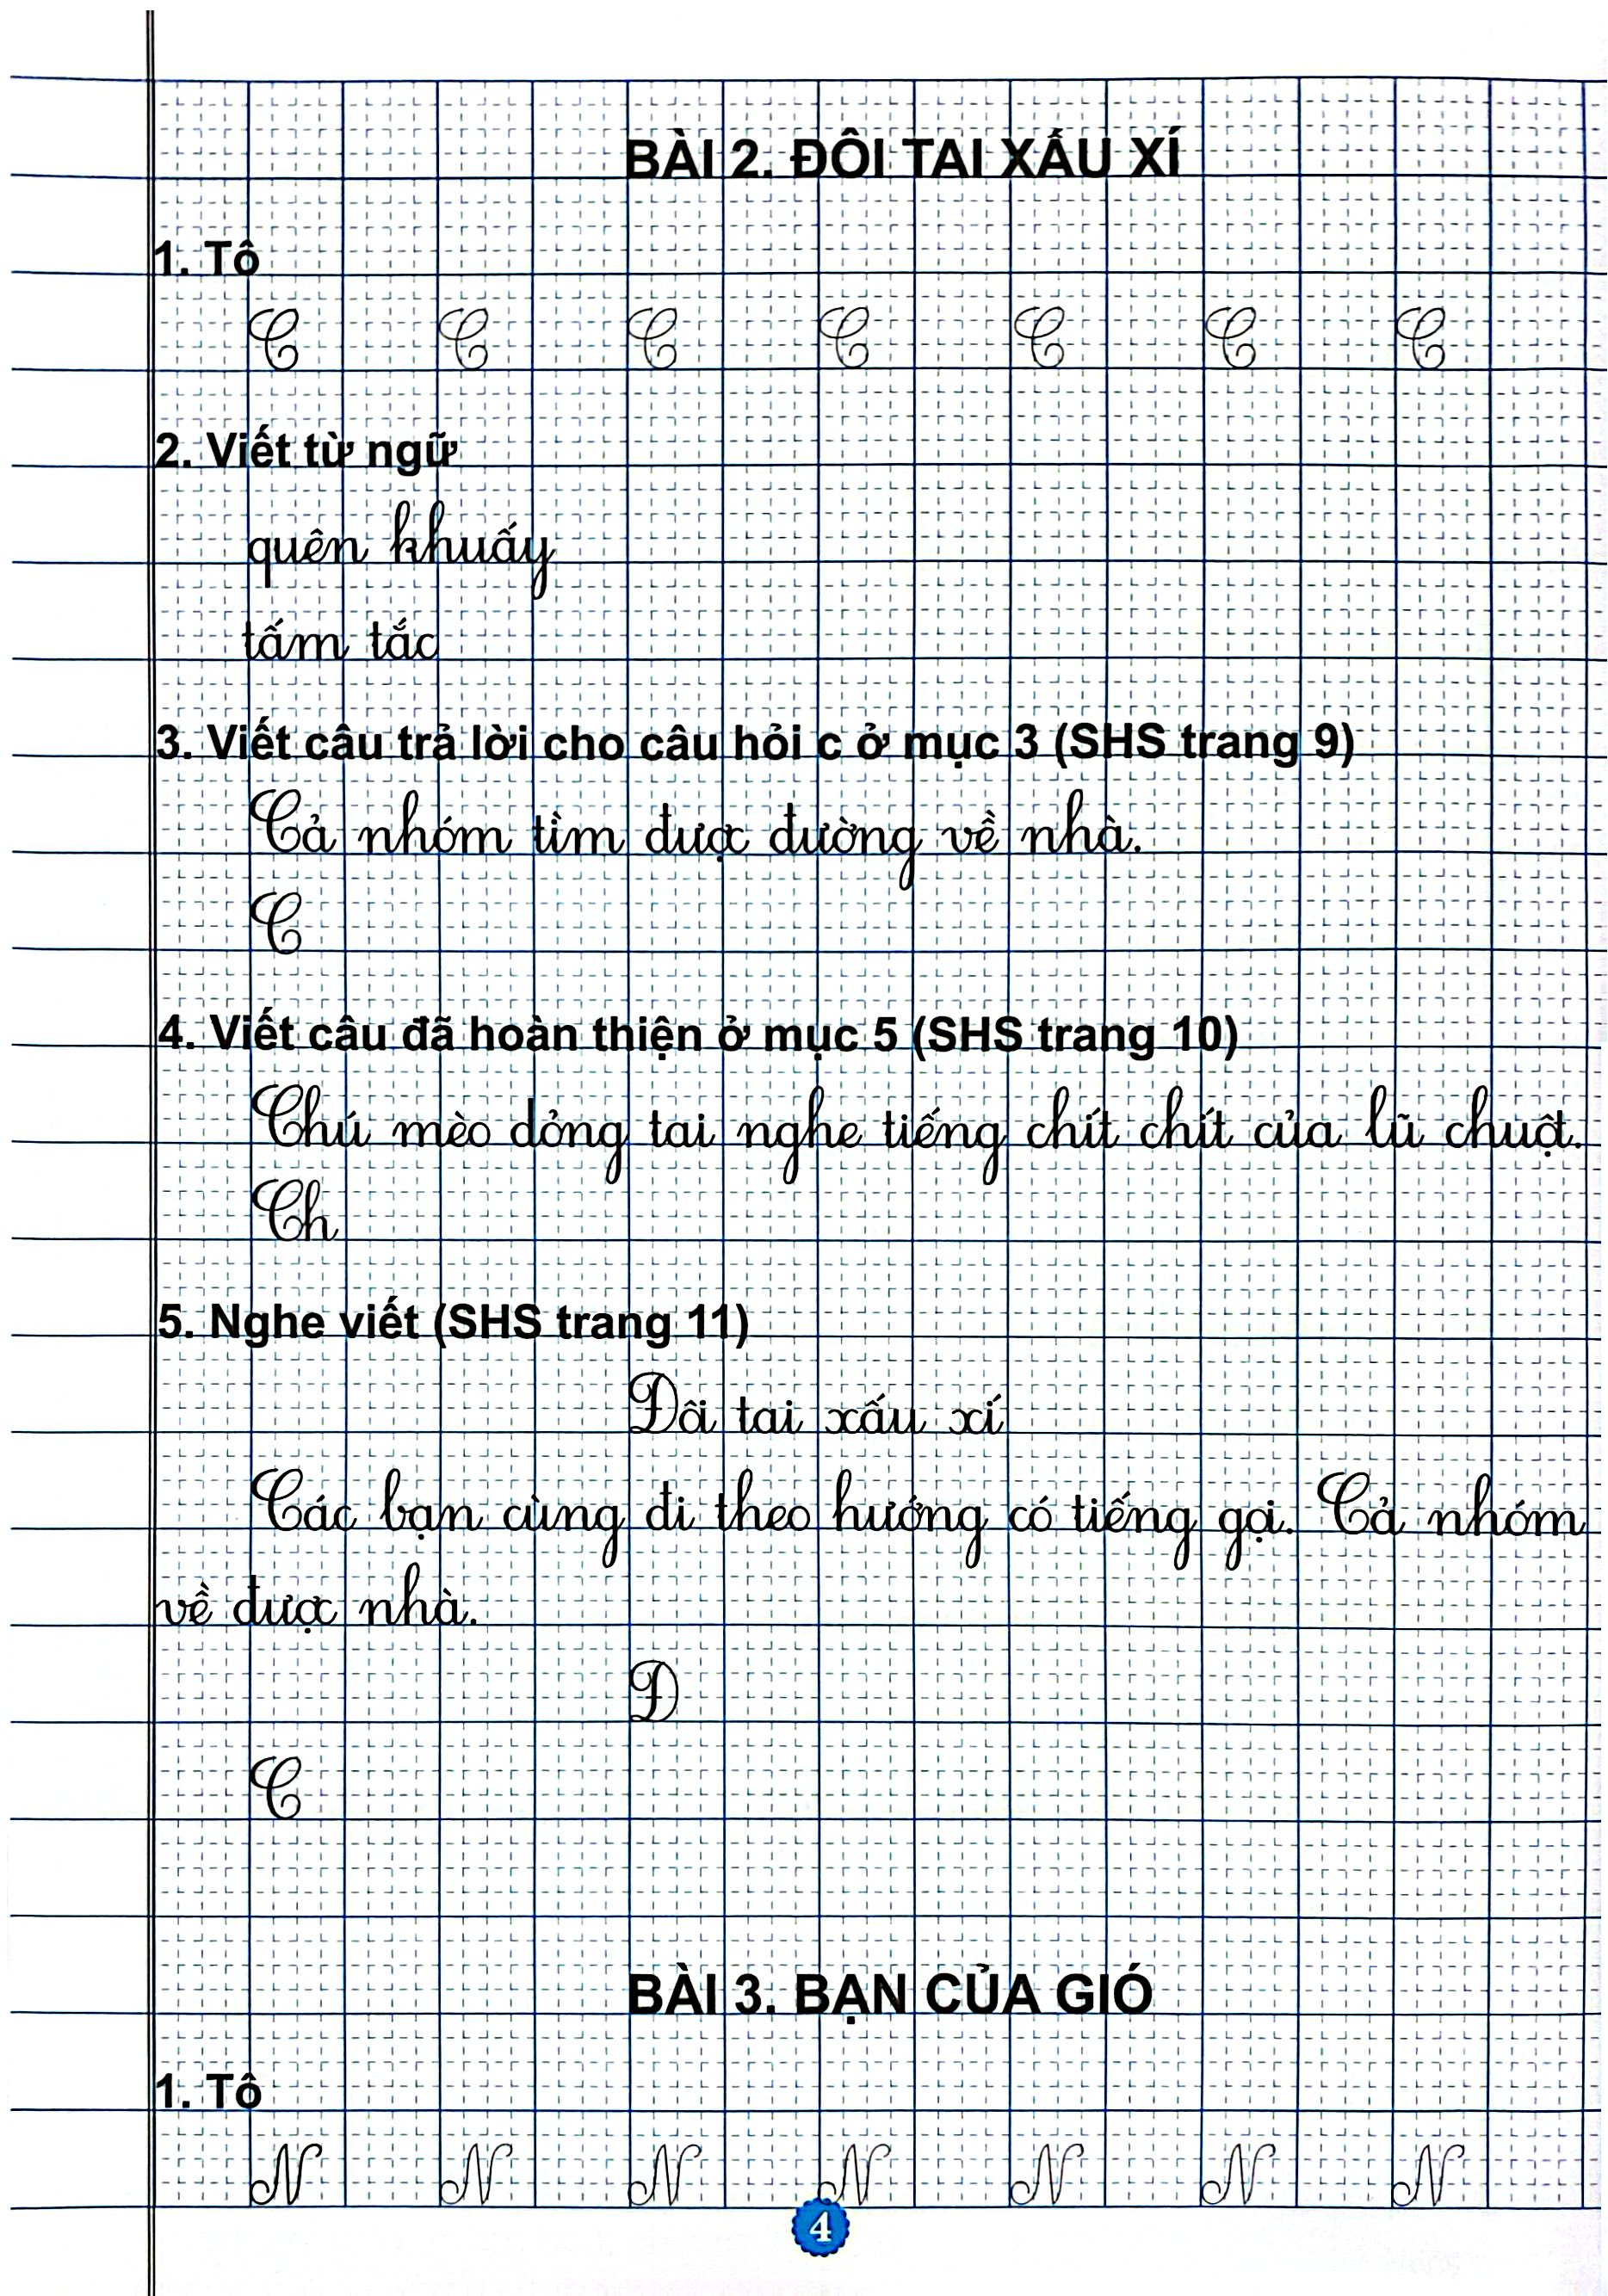 BÀI 2. ĐÔI TAI XẤU XÍ
1. Tô
C C C C C C C
2. Viết từ ngữ
quên khuấy
tấm tắc
3. Viết câu trả lời cho câu hỏi c ở mục 3 (SHS trang 9)
Cả nhóm tìm được đường về nhà.
C
4. Viết câu đã hoàn thiện ở mục 5 (SHS trang 10)
Chú mèo dỏng tai nghe tiếng chít chít của lũ chuột.
Ch
5. Nghe viết (SHS trang 11)
Đôi tai xấu xí
Các bạn cùng đi theo hướng có tiếng gọi. Cả nhóm
về được nhà.
Đ
C
BÀI 3. BẠN CỦA GIÓ
1. Tô
N N N N N N N
4